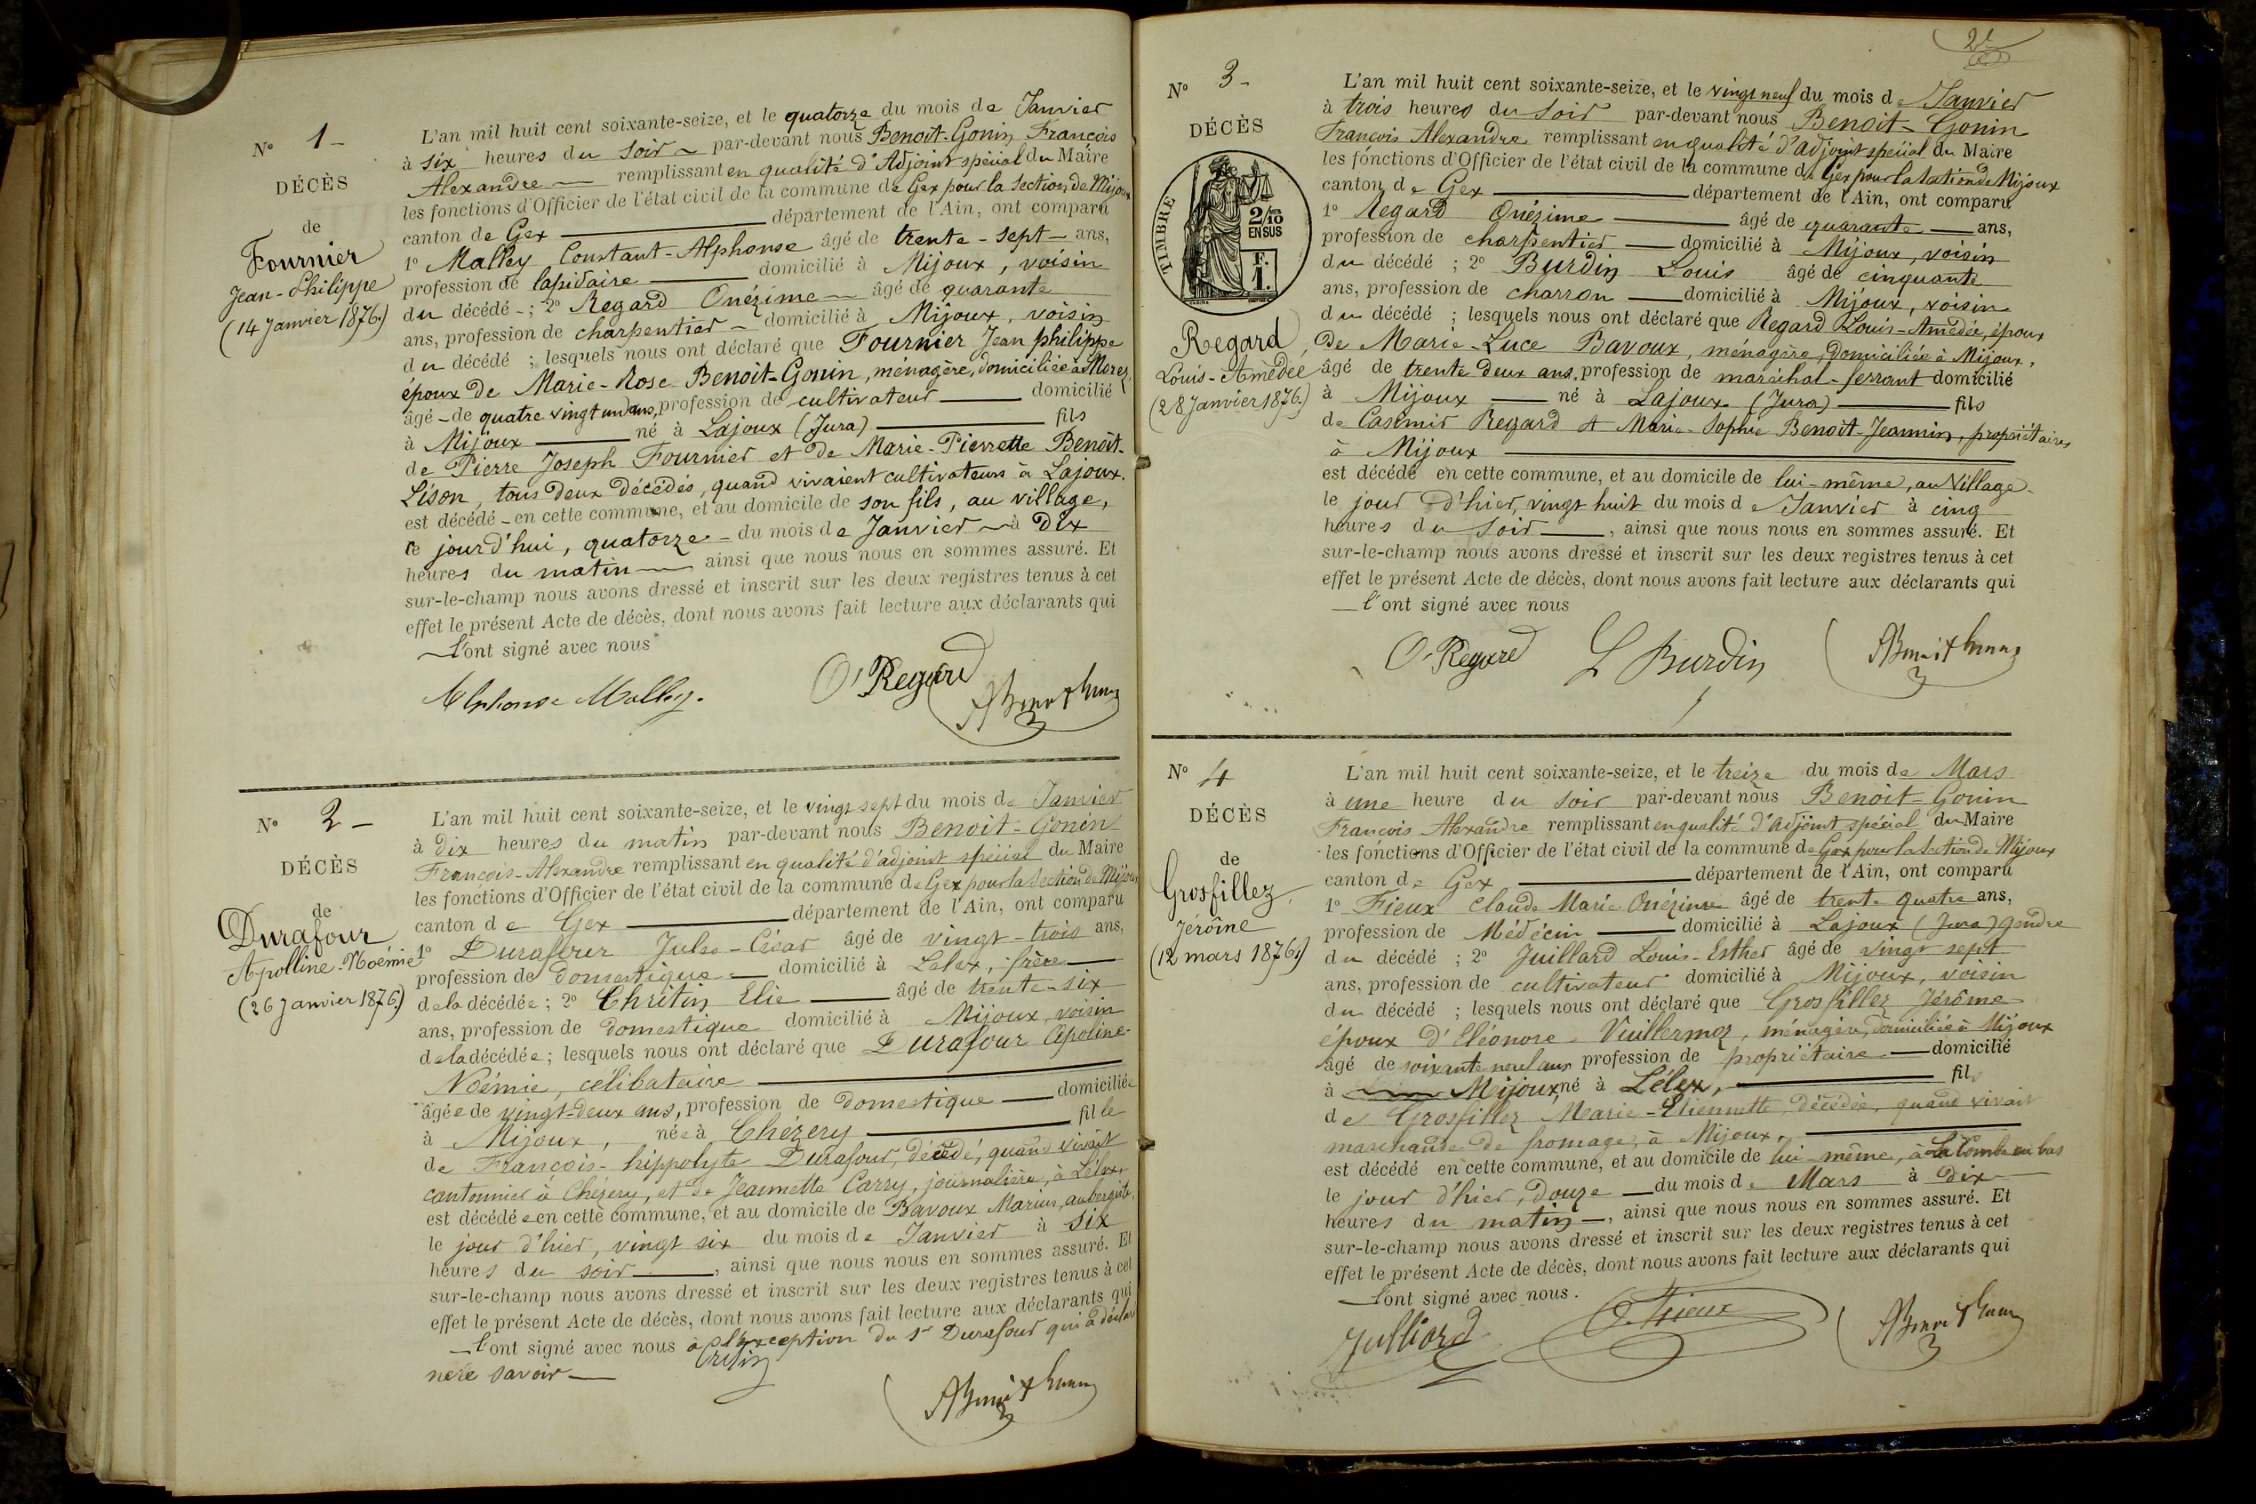 N° 1 -
DÉCÈS
de
Fournier
Jean-Philippe
(14 Janvier 1876.)
L'an mil huit cent soixante-seize, et le quatorze du mois de Janvier
à six heures du soir par-devant nous Benoit-Gonin François
Alexandre remplissant en qualité d'Adjoint spécial du Maire
les fonctions d'Officier de l'état civil de la commune de Gex pour la section de Mijoux
canton de Gex département de l'Ain, ont comparu
1° Malley Constant-Alphonse âgé de trente-sept ans,
profession de lapidaire domicilié à Mijoux, voisin
du décédé ; 2° Regard Onézime âgé de quarante
ans, profession de charpentier domicilié à Mijoux, voisin
du décédé ; lesquels nous ont déclaré que Fournier Jean philippe
époux de Marie-Rose Benoit-Gonin, ménagère, domiciliée à Morez,
âgé de quatre vingt un ans, profession de cultivateur domicilié
à Mijoux né à Lajoux (Jura) fils
de Pierre Joseph Fournier et de Marie-Pierrette Benoît-
Lison, tous deux décédés, quand vivaient cultivateurs à Lajoux.
est décédé en cette commune, et au domicile de son fils, au village,
ce jourd'hui, quatorze du mois de Janvier à dix
heures du matin ainsi que nous nous en sommes assuré. Et
sur-le-champ nous avons dressé et inscrit sur les deux registres tenus à cet
effet le présent Acte de décès, dont nous avons fait lecture aux déclarants qui
l'ont signé avec nous
Alphonse Malley.
O, Regard
N° 2 -
DÉCÈS
de
Durafour
Apolline-Noémie
(26 Janvier 1876.)
L'an mil huit cent soixante-seize, et le vingt sept du mois de Janvier
à dix heures du matin par-devant nous Benoit-Gonin
François-Alexandre remplissant en qualité d'adjoint spécial du Maire
les fonctions d'Officier de l'état civil de la commune de Gex pour la section de Mijoux
canton de Gex département de l'Ain, ont comparu
1° Durafour Jules-César âgé de vingt-trois ans,
profession de domestique domicilié à Lelex, frère
de la décédée ; 2° Chritin Elie âgé de trente-six
ans, profession de domestique domicilié à Mijoux, voisin
de la décédée ; lesquels nous ont déclaré que Durafour Apoline-
Noémie, célibataire
âgée de vingt-deux ans, profession de domestique domiciliée
à Mijoux, née à Chézery fille
de François-hippolyte Durafour, décédé, quand vivait
cantonnier à Chézery, et de Jeannette Carry, journalière, à Lélex,
est décédée en cette commune, et au domicile de Bavoux Marius, aubergiste,
le jour d'hier, vingt six du mois de Janvier à six
heures du soir, ainsi que nous nous en sommes assuré. Et
sur-le-champ nous avons dressé et inscrit sur les deux registres tenus à cet
effet le présent Acte de décès, dont nous avons fait lecture aux déclarants qui
l'ont signé avec nous à l'exception du Sr Durafour qui a déclaré
ne le savoir
N° 3 -
DÉCÈS
TIMBRE
2/10
EN SUS
F.
1.
Regard
Louis-Amédée
(28 Janvier 1876.)
L'an mil huit cent soixante-seize, et le vingt neuf du mois de Janvier
à trois heures du soir par-devant nous Benoit-Gonin
François Alexandre remplissant en qualité d'adjoint spécial du Maire
les fonctions d'Officier de l'état civil de la commune de Gex pour la section de Mijoux
canton de Gex département de l'Ain, ont comparu
1° Regard Onézime âgé de quarante ans,
profession de charpentier domicilié à Mijoux, voisin
du décédé ; 2° Burdin Louis âgé de cinquante
ans, profession de charron domicilié à Mijoux, voisin
du décédé ; lesquels nous ont déclaré que Regard Louis-Amédée, époux
de Marie-Luce Bavoux, ménagère, domiciliée à Mijoux,
âgé de trente deux ans, profession de maréchal-ferrant domicilié
à Mijoux né à Lajoux (Jura) fils
de Casimir Regard et Marie-Sophie Benoît-Jeannin, propriétaires
à Mijoux
est décédé en cette commune, et au domicile de lui-même, au Village
le jour d'hier, vingt huit du mois de Janvier à cinq
heures du soir, ainsi que nous nous en sommes assuré. Et
sur-le-champ nous avons dressé et inscrit sur les deux registres tenus à cet
effet le présent Acte de décès, dont nous avons fait lecture aux déclarants qui
l'ont signé avec nous
O, Regard L Burdin
N° 4
DÉCÈS
de
Grosfillez
Jérôme
(12 mars 1876.)
L'an mil huit cent soixante-seize, et le treize du mois de Mars
à une heure du soir par-devant nous Benoit-Gonin
François Alexandre remplissant en qualité d'adjoint spécial du Maire
les fonctions d'Officier de l'état civil de la commune de Gex pour la section de Mijoux
canton de Gex département de l'Ain, ont comparu
1° Fieux Claude Marie Onézime âgé de trente quatre ans,
profession de Médécin domicilié à Lajoux (Jura) gendre
du décédé ; 2° Juillard Louis-Esther âgé de vingt sept
ans, profession de cultivateur domicilié à Mijoux, voisin
du décédé ; lesquels nous ont déclaré que Grosfillez Jérôme
époux d'Eléonore Vuillermoz, ménagère, domiciliée à Mijoux
âgé de soixante neuf ans profession de propriétaire domicilié
à Mijoux, né à Lélex, fils
de Grosfillez Marie-Etiennette, décédée, quand vivait
marchande de fromage, à Mijoux,
est décédé en cette commune, et au domicile de lui-même, à La Combe en bas
le jour d'hier, douze du mois de Mars à dix
heures du matin, ainsi que nous nous en sommes assuré. Et
sur-le-champ nous avons dressé et inscrit sur les deux registres tenus à cet
effet le présent Acte de décès, dont nous avons fait lecture aux déclarants qui
l'ont signé avec nous.
Julliard O. Fieux